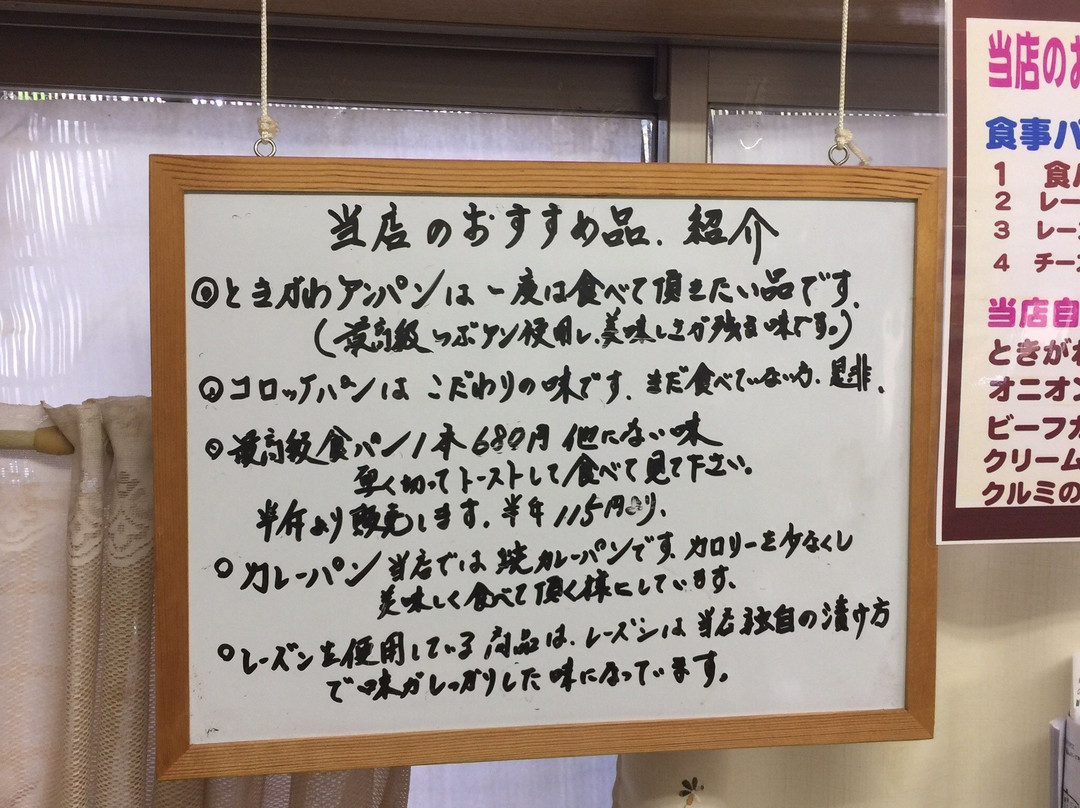 当店のおすすめ品.紹介
◎ときがわアンパンは一度は食べて頂きたい品です.
(最高級つぶアン使用し.美味しさが残る味です。)
◎コロッケパンはこだわりの味です.まだ食べていない方.是非.
◎最高級食パン1本680円他にない味
厚く切ってトーストして食べて見て下さい。
半斤より販売します.半斤115円より.
○カレーパン当店では焼カレーパンです.カロリーを少なくし
美味しく食べて頂く様にしています。
○レーズンを使用している商品は.レーズンは当店独自の漬け方
で味がしっかりした味になっています。
当店のお
食事パ
1 食パ
2 レー
3 レーズ
4 チーズ
当店自
ときがわ
オニオン
ビーフカ
クリーム
クルミの